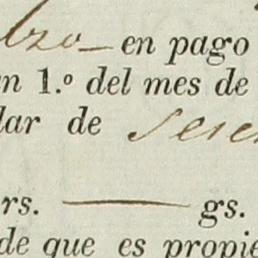 lzo en pago
n 1.º del mes de
lar de
rs. gs.
de que es propie